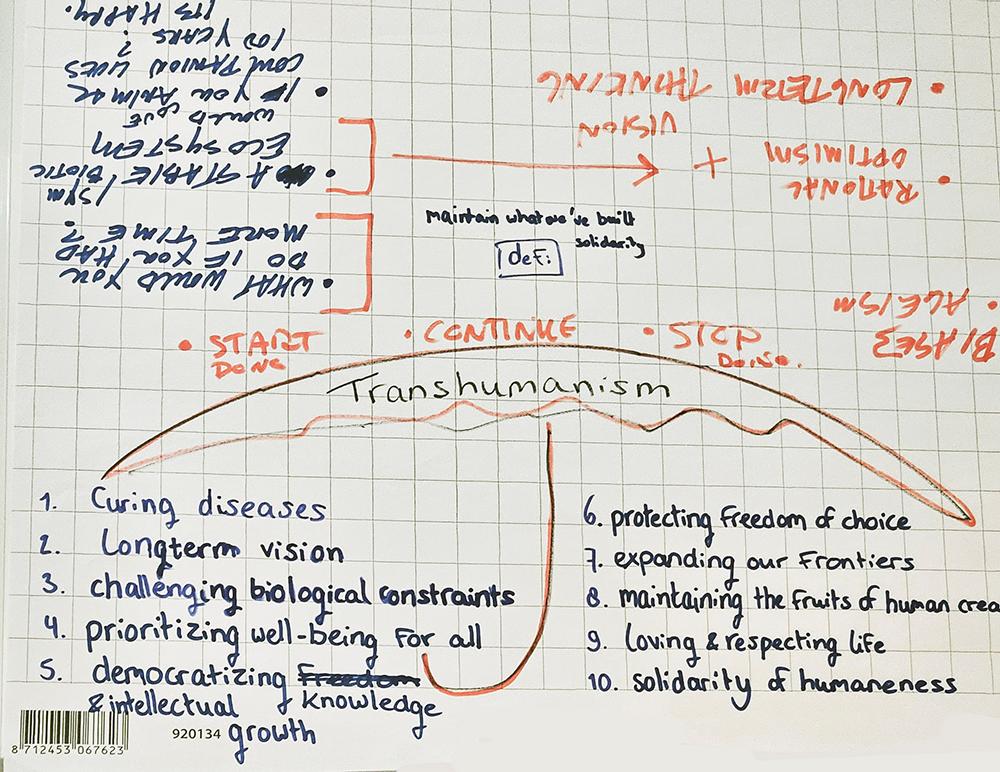 • WHAT WOULD YOU
DO IF YOU HAD
MORE TIME ?
• A STABLE / SYM
BIOTIC
ECOSYSTEM
WOULD
• IF YOU ANIMAL
COMPANION LIVES
100 YEARS ?
ITS HAPPY.
BIASES
• AGEISM
• RATIONAL
OPTIMISM
+
VISION
• LONGTERM THINKING
Maintain what we've built
solidarity
def:
• START
DOING
• CONTINUE
• STOP
DOING.
Transhumanism
1. Curing diseases
2. Longterm vision
3. challenging biological constraints
4. prioritizing well-being for all
5. democratizing Freedom
& intellectual & knowledge
growth
6. protecting freedom of choice
7. expanding our frontiers
8. maintaining the fruits of human crea
9. loving & respecting life
10. solidarity of humaneness
8 712453 067623
920134